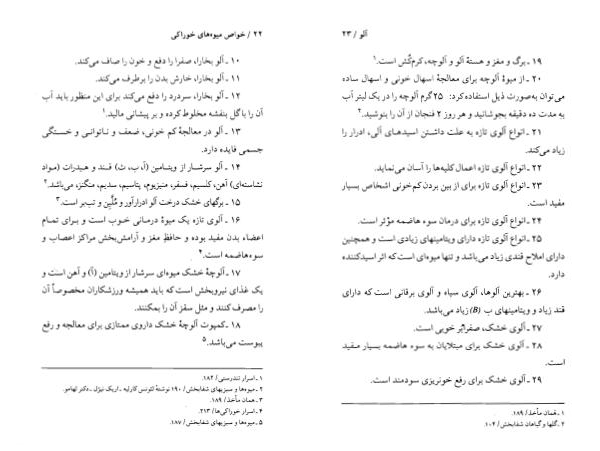 ۲۲ / خواص میوه‌های خوراکی
۱۰ ـ آلو بخارا، صفرا را دفع و خون را صاف می‌کند.
۱۱ ـ آلو بخارا، خارش بدن را برطرف می‌کند.
۱۲ ـ آلو بخارا، سردرد را دفع می‌کند برای این منظور باید آب
آن را باگل بنفشه مخلوط کرده و بر پیشانی مالید.۱
۱۳ ـ آلو در معالجهٔ کم خونی، ضعف و ناتوانی و خستگی
جسمی فایده دارد.
۱۴ ـ آلو سرشار از ویتامین (آ، ب، ث) قند و هیدرات (مواد
نشاسته‌ای) آهن، کلسیم، فسفر، منیزیوم، پتاسیم، سدیم، منگنز، می‌باشد.۲
۱۵ ـ برگهای خشک درخت آلو ادرارآور و مُلَیِّن و تب‌بر است.۳
۱۶ ـ آلوی تازه یک میوهٔ درمانی خوب است و برای تمام
اعضاء بدن مفید بوده و حافظِ مغز و آرامش‌بخش مراکز اعصاب و
سوءهاضمه است.۴
۱۷ ـ آلوچهٔ خشک میوه‌ای سرشار از ویتامین (آ) و آهن است و
یک غذای نیروبخش است که باید همیشه ورزشکاران مخصوصاً آن
را مصرف کنند و مثل سقز آن را بمکنند.
۱۸ ـ کمپوت آلوچهٔ خشک داروی ممتازی برای معالجه و رفع
یبوست می‌باشد.۵
۱ ـ اسرار تندرستی/ ۱۸۲.
۲ ـ میوه‌ها و سبزیهای شفابخش/ ۱۹۰ نوشتهٔ لئونس کارلیه ـ اریک نیژل ـ دکتر لهامو.
۳ ـ همان مأخذ/ ۱۸۹.
۴ ـ اسرار خوراکی‌ها/ ۲۱۳.
۵ ـ میوه‌ها و سبزیهای شفابخش/ ۱۸۷.
آلو / ۲۳
۱۹ ـ برگ و مغز و هستهٔ آلو و آلوچه، کرم‌کُش است.۱
۲۰ ـ از میوهٔ آلوچه برای معالجهٔ اسهال خونی و اسهال ساده
می‌توان به‌صورت ذیل استفاده کرد: ۲۵گرم آلوچه را در یک لیتر آب
به مدت ده دقیقه بجوشانید و هر روز ۲ فنجان از آن را بنوشید.۲
۲۱ ـ انواع آلوی تازه به علت داشتن اسیدهای آلی، ادرار را
زیاد می‌کند.
۲۲ ـ انواع آلوی تازه اعمال کلیه‌ها را آسان می‌نماید.
۲۳ ـ انواع آلوی تازه برای از بین بردن کم‌خونی اشخاص بسیار
مفید است.
۲۴ ـ انواع آلوی تازه برای درمان سوء هاضمه مؤثر است.
۲۵ ـ انواع آلوی تازه دارای ویتامینهای زیادی است و همچنین
دارای املاح قندی زیاد می‌باشد و تنها میوه‌ای است‌که اثر اسیدکننده
دارد.
۲۶ ـ بهترین آلوها، آلوی سیاه و آلوی برقانی است که دارای
قند زیاد و ویتامینهای ب (B) زیاد می‌باشد.
۲۷ ـ آلوی خشک، صفرابُر خوبی است.
۲۸ ـ آلوی خشک برای مبتلایان به سوء هاضمه بسیار مفید
است.
۲۹ ـ آلوی خشک برای رفع خونریزی سودمند است.
۱ ـ همان مأخذ/ ۱۸۹.
۲ ـ گلها و گیاهان شفابخش/ ۱۰۴.